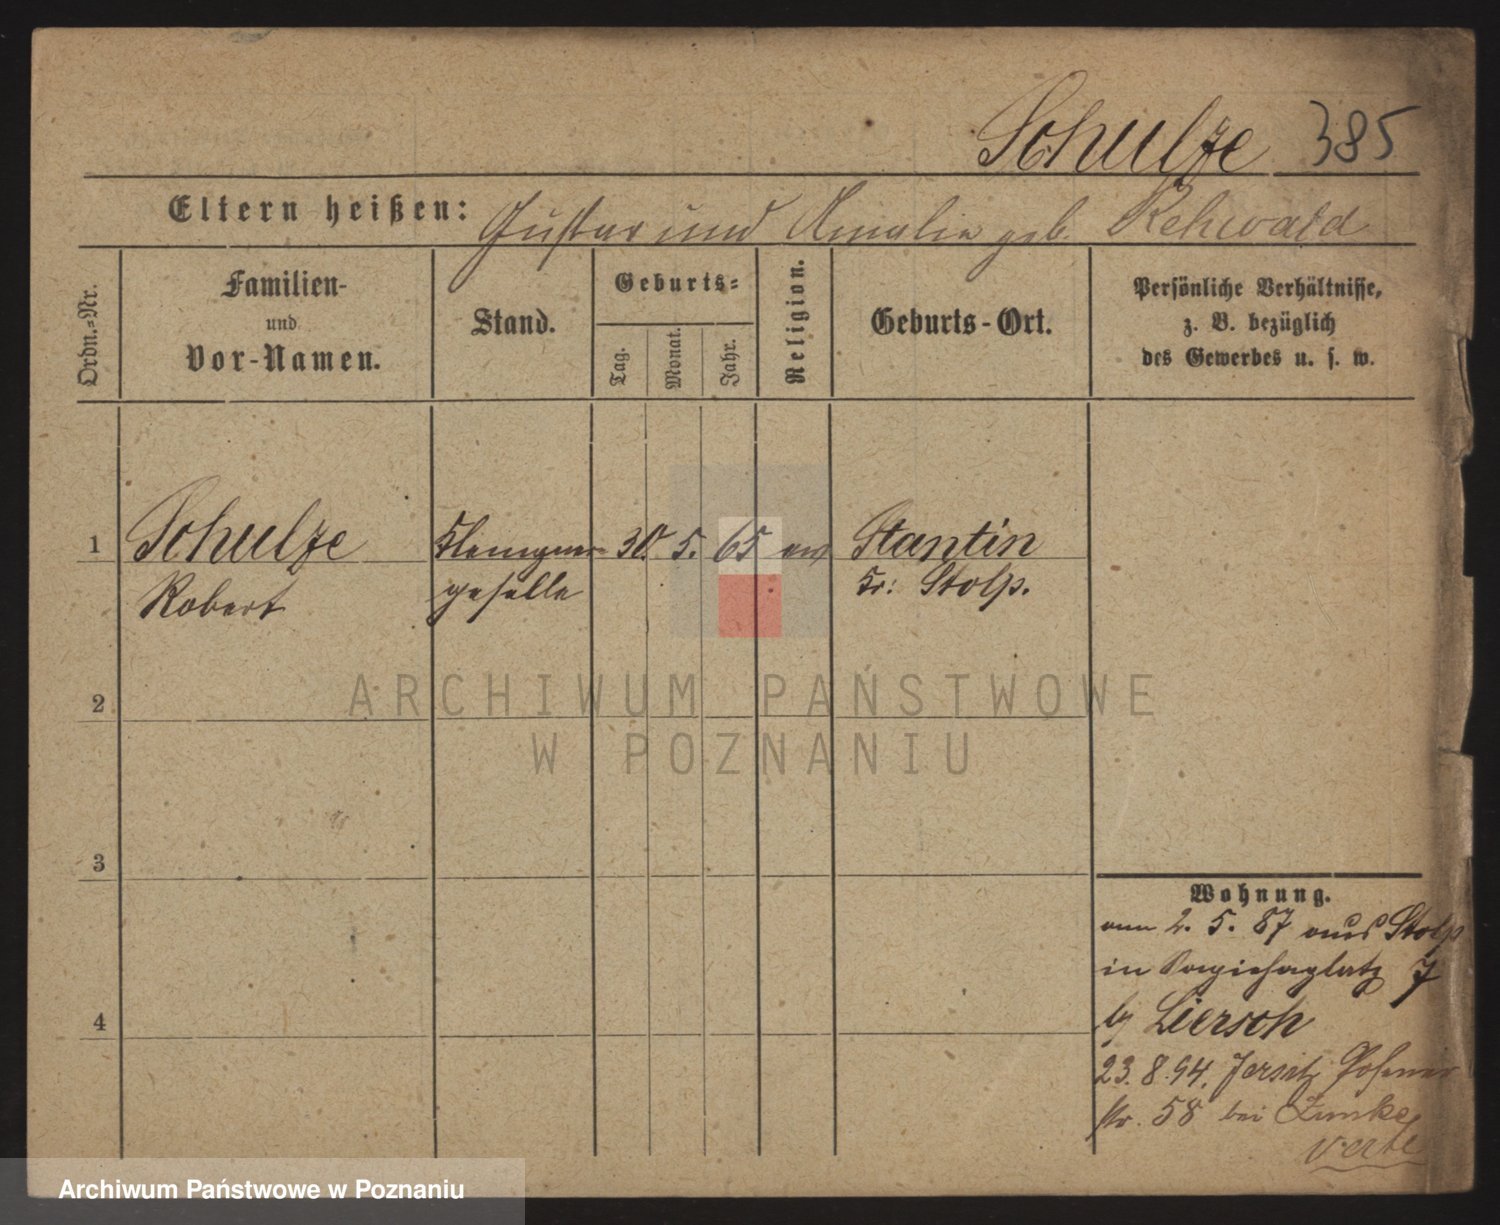 Schulze 385
Eltern heißen: Gustav und Amalie geb. Rehwald
Ordn.=Nr.
Familien-
und
Vor-Namen.
Stand.
Geburts=
Tag.
Monat.
Jahr.
Religion.
Geburts-Ort.
Persönliche Verhältnisse,
z. B. bezüglich
des Gewerbes u. s. w.
1 Schulze Klempner- 30. 5. 65 ev Stantin
Robert geselle Kr: Stolp.
2
3
4
Wohnung.
am 2. 5. 87 aus Stolp
in Sapiehaplatz 7
bj Liersch
23. 8. 94. Jersitz Posener
str. 58 bei Zunke
verte
ARCHIWUM PAŃSTWOWE
W POZNANIU
Archiwum Państwowe w Poznaniu